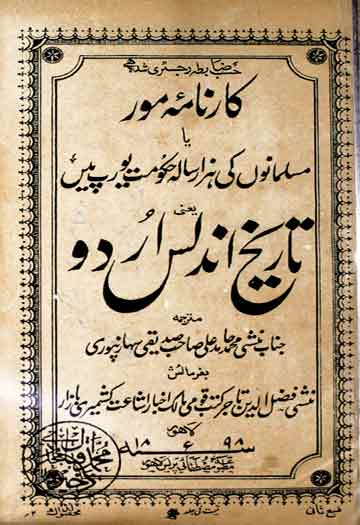 حسب ضابطہ رجسٹری شدہ ہے
کارنامۂ مور
یا
مسلمانوں کی ہزار سالہ حکومت یورپ میں
یعنی
تاریخ اندلس اردو
مترجمہ
جناب منشی محمد حامد علی صاحب صدیقی سہارنپوری
بفرمائش
منشی فضل الدین تاجر کتب قومی مالک اخبار اشاعت کشمیری بازار
لاہور
سنہ ۱۸۹۸ء
لاہور
طبع ثانی